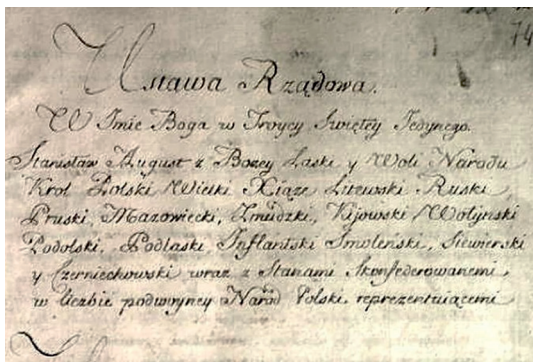 74
Ustawa Rządowa.
W Imie Boga w Troycy Swiętey Jedynego.
Stanisław August z Bozey Łaski y Woli Narodu
Krol Polski Wielki Xiąze Litewski Ruski
Pruski, Mazowiecki, Zmudzki, Kijowski Wołyński
Podolski, Podlaski, Inflantski Smolenski, Siewierski
y Czerniechowski wraz z Stanami Skonfederowanemi
w liczbie podwoyney Narod Polski reprezentuiącemi